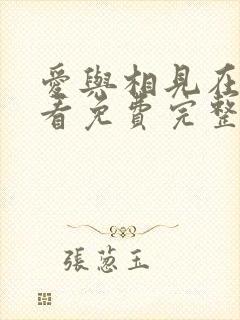 愛與相見在
看免費完整
張蔥玉